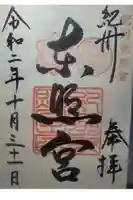 紀州
奉拝
東照宮
令和二年十月三十一日